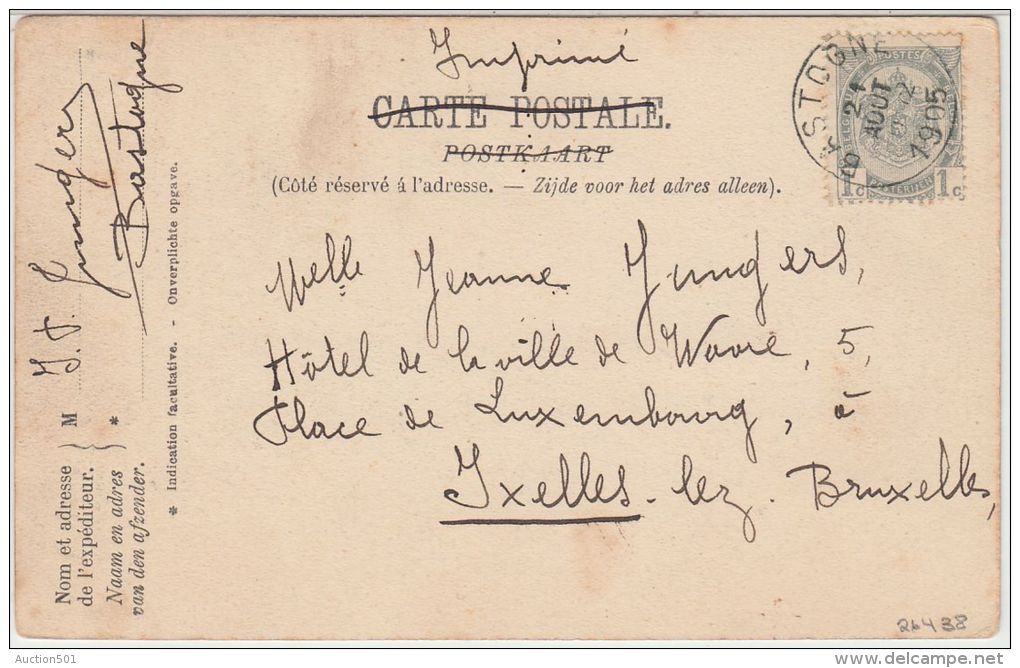 Imprimé
CARTE POSTALE.
POSTKAART
(Côté réservé á l'adresse. — Zijde voor het adres alleen).
BASTOGNE
21
AOUT
1905
POSTES
1c 1c
Melle Jeanne Jungers,
Hôtel de la ville de Wavre, 5,
Place de Luxembourg, à
Ixelles-lez-Bruxelles,
Nom et adresse
de l'expéditeur.
Naam en adres
van den afzender.
M
*
J. P. Jungers
Bastogne
* Indication facultative. - Onverplichte opgave.
26438
Auction501
delcampe.net